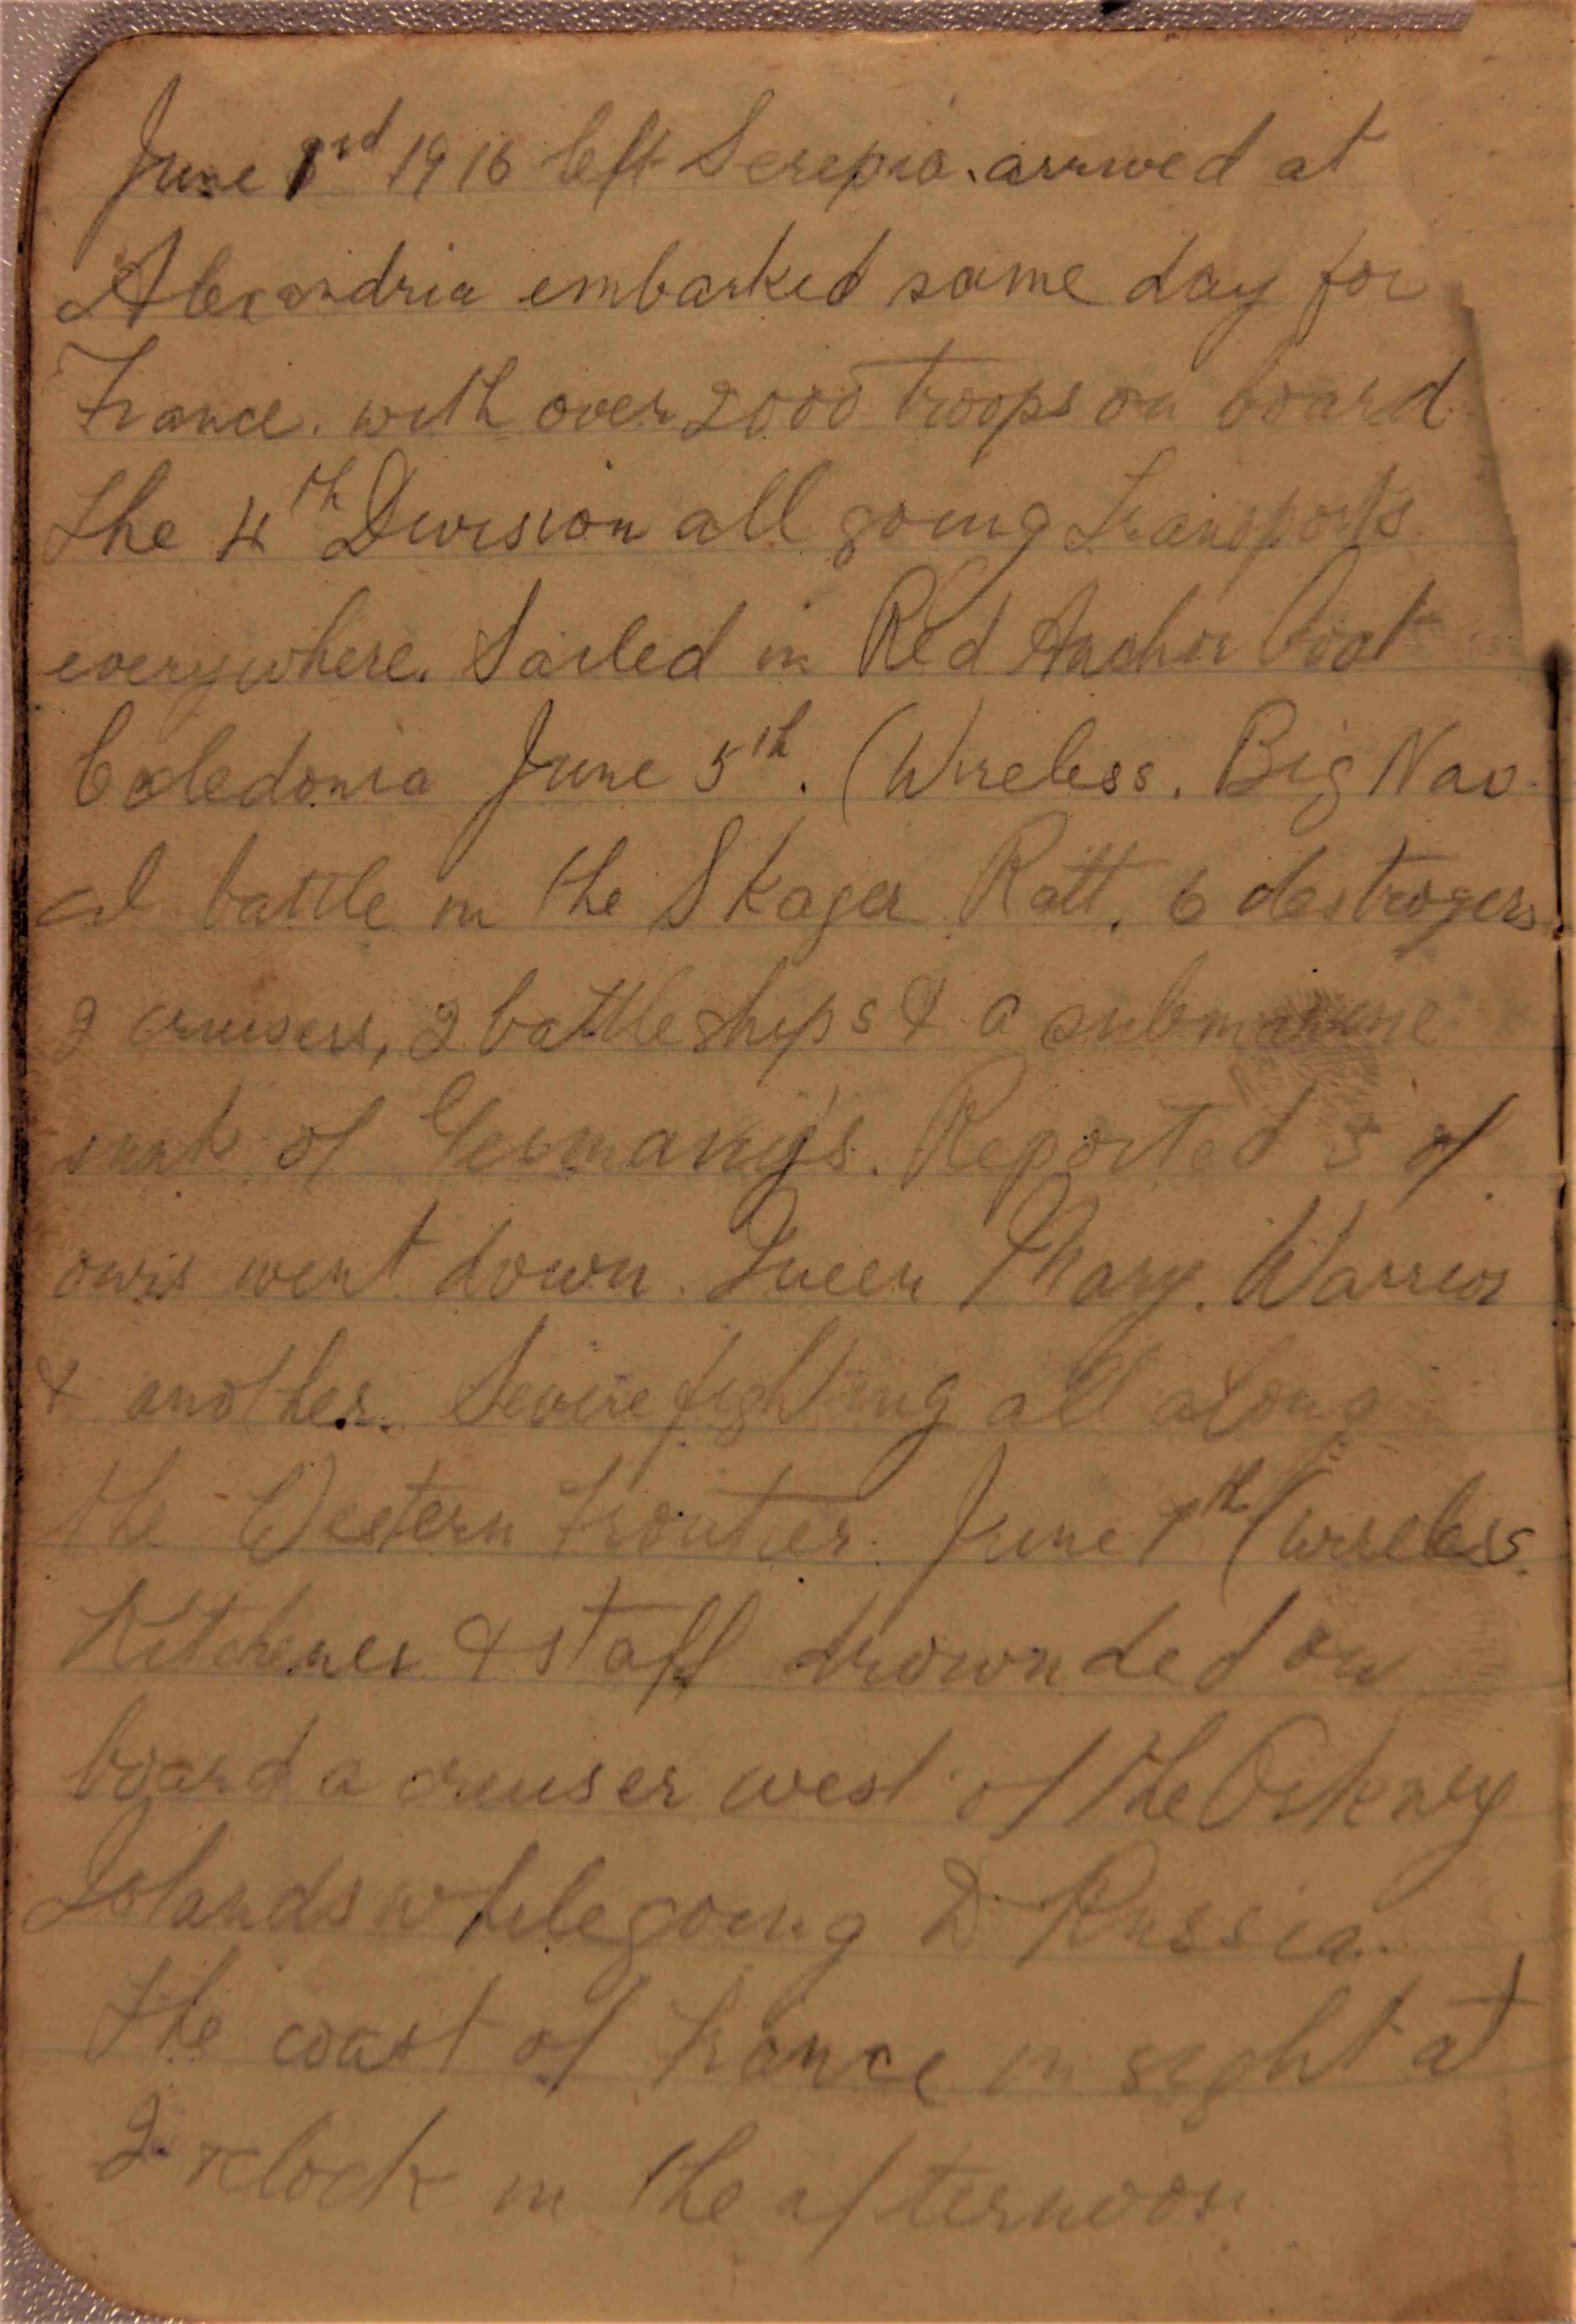 June 3rd 1916 left Serepia. arrived at
Alexandria embarked same day for
France. with over 2000 troops on board
the 4th Division all going Transports
everywhere. Sailed in Red Anchor boat
Caledonia June 5th. (Wireless. Big Nav
al battle in the Skager Ratt. 6 destroyers
2 cruisers, 2 battleships & a submarine
sunk of Germany's. Reported 3 of
ours went down. Queen Mary. Warrior
& another. Severe fighting all along
the Western Frontier. June 7th (wireless.
Kitchener & staff drownded on
board a cruiser west of the Orkney
Islands while going to Russia.
The coast of France in sight at
2 oclock in the afternoon